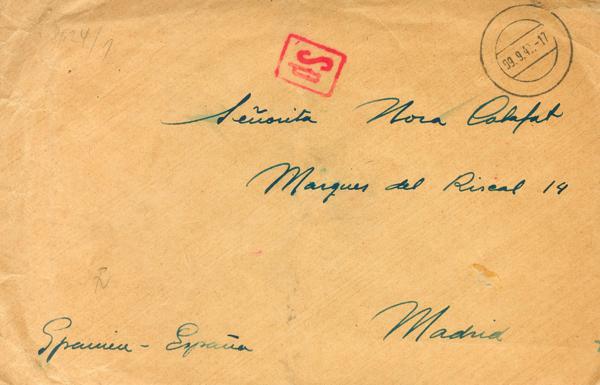 Señorita Nora Calafat
Marques del Riscal 14
Madrid
Spanien - España